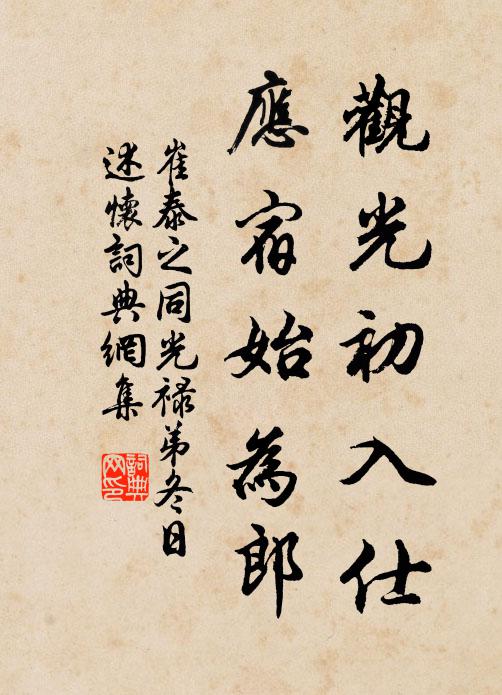 觀光初入仕
應宿始為郎
崔泰之同光禄弟冬日
述懷詞典網集
詞典
网印